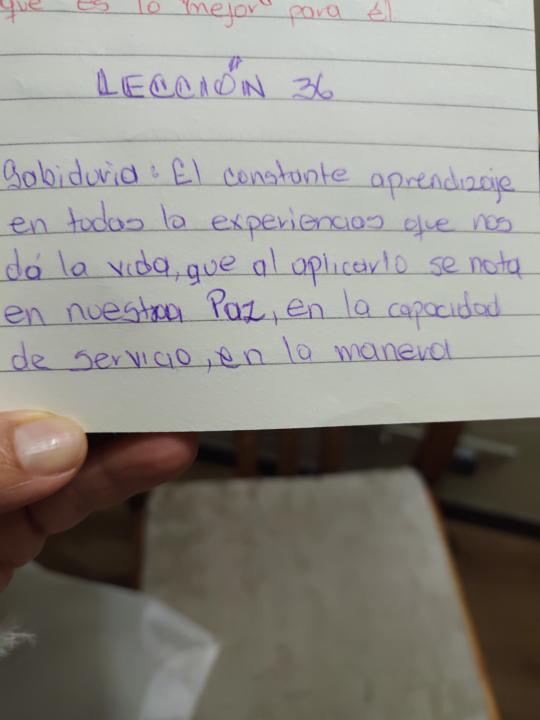 que es lo mejor para él
LECCIÓN 36
Sabiduria: El constante aprendizaje
en todas la experiencias que nos
dá la vida, que al aplicarlo se nota
en nuestra Paz, en la capacidad
de servicio, en la manera